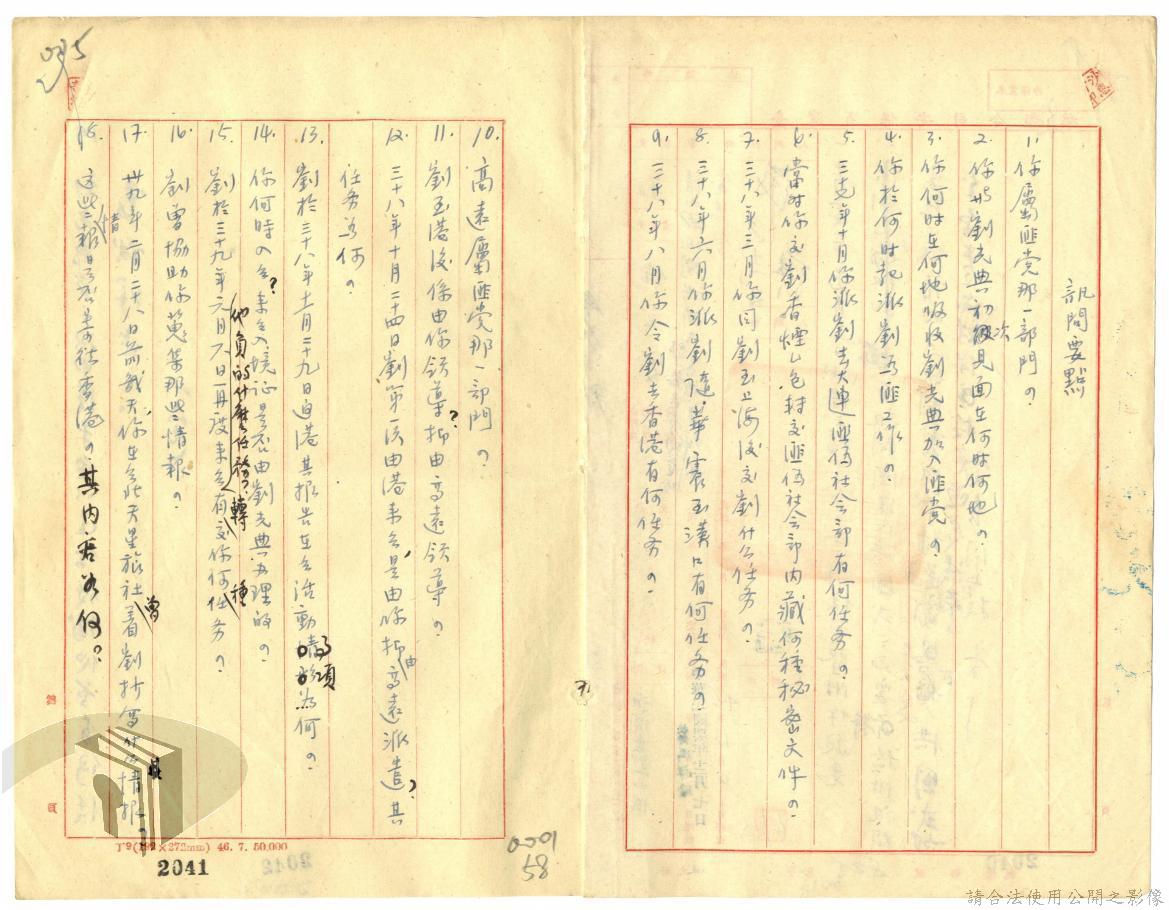 訊問要點
1. 你屬匪党那一部門？
2. 你與劉光典初次見面在何时何地？
3. 你何时在何地吸收劉光典加入匪党？
4. 你於何时起派劉為匪工作？
5. 三十七年十月你派劉去大連匪偽社会部有何任务？
6. 當时你交劉香煙乙包轉交匪偽社会部内藏何種秘密文件？
7. 三十八年三月你同劉至上海後交劉什么任务？
8. 三十八年六月你派劉隨華震至漢口有何任务？
9. 三十八年八月你令劉去香港有何任务？
10. 高遠屬匪党那一部門？
11. 劉至港後係由你領導？抑由高遠領導？
12. 三十八年十月二四日劉第一次由港来台是由你抑由高遠派遣？其
任务为何？
13. 劉於三十八年十二月二十九日返港其报告在台活動事項為何？
14. 你何時入台？来台入境証是否由劉光典办理的？
15. 劉於三十九年元月六日再度来台，他負的什麼任務？有轉交你何種任务？
16. 劉曾協助你蒐集那些情報？
17. 卅九年二月二十八日前幾天你在台北天星旅社曾看劉抄寫什么情报？
18. 這些情報是否寄往香港？其内容為何？
T9(192×272mm) 46. 7. 50,000
2041
0001
58
請合法使用公開之影像